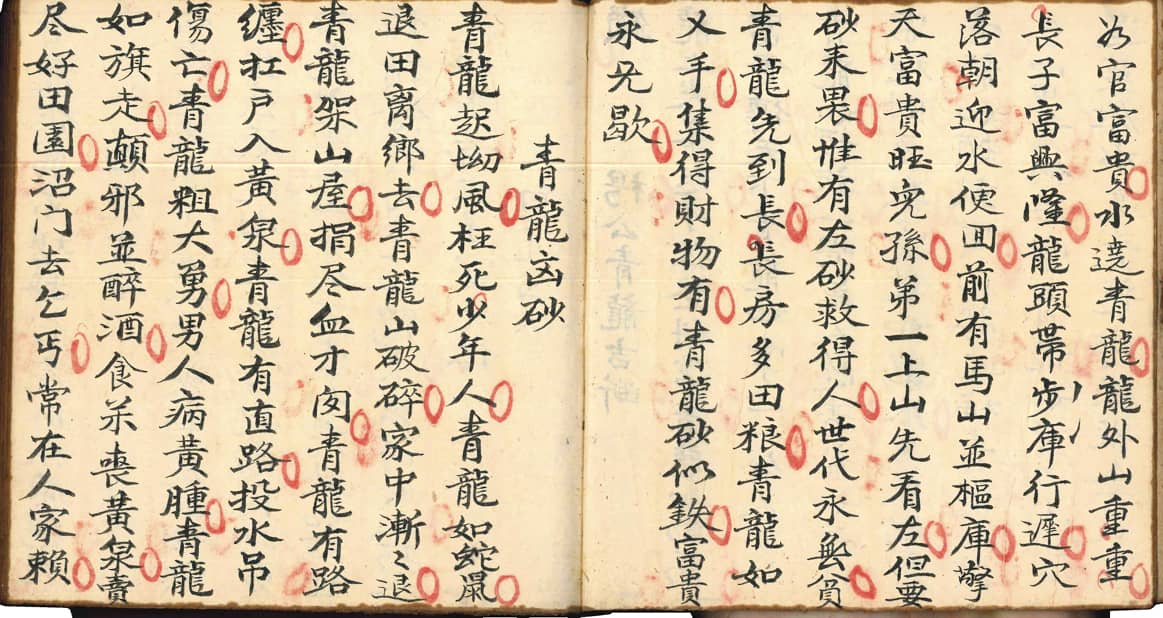 為官富貴水遶青龍龍外山重重
長子富興隆龍頭帶步庫行遲穴
落朝迎水便囬前有馬山並樞庫擎
天富貴旺兇孫弟一上山先看左但要
砂来畏惟有左砂救得人世代永無貧
青龍先到長長房多田粮青龍如
义手集得財物有青龍砂似鉄富貴
永旡歇
青龍凶砂
青龍起坳風枉死少年人青龍如蛇鼠
退田离鄉去青龍山破碎家中漸〻退
青龍架山屋捐尽血才囡青龍有路
纏扛戸入黃泉青龍有直路投水吊
傷亡青龍粗大勇男人病黄腫青龍
如旗走顛邪並醉酒食茶喪黃泉賣
尽好田園沼门去乞丐常在人家賴